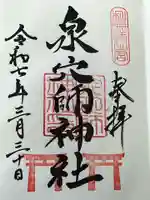 奉拝
泉穴師神社
令和七年三月三十日